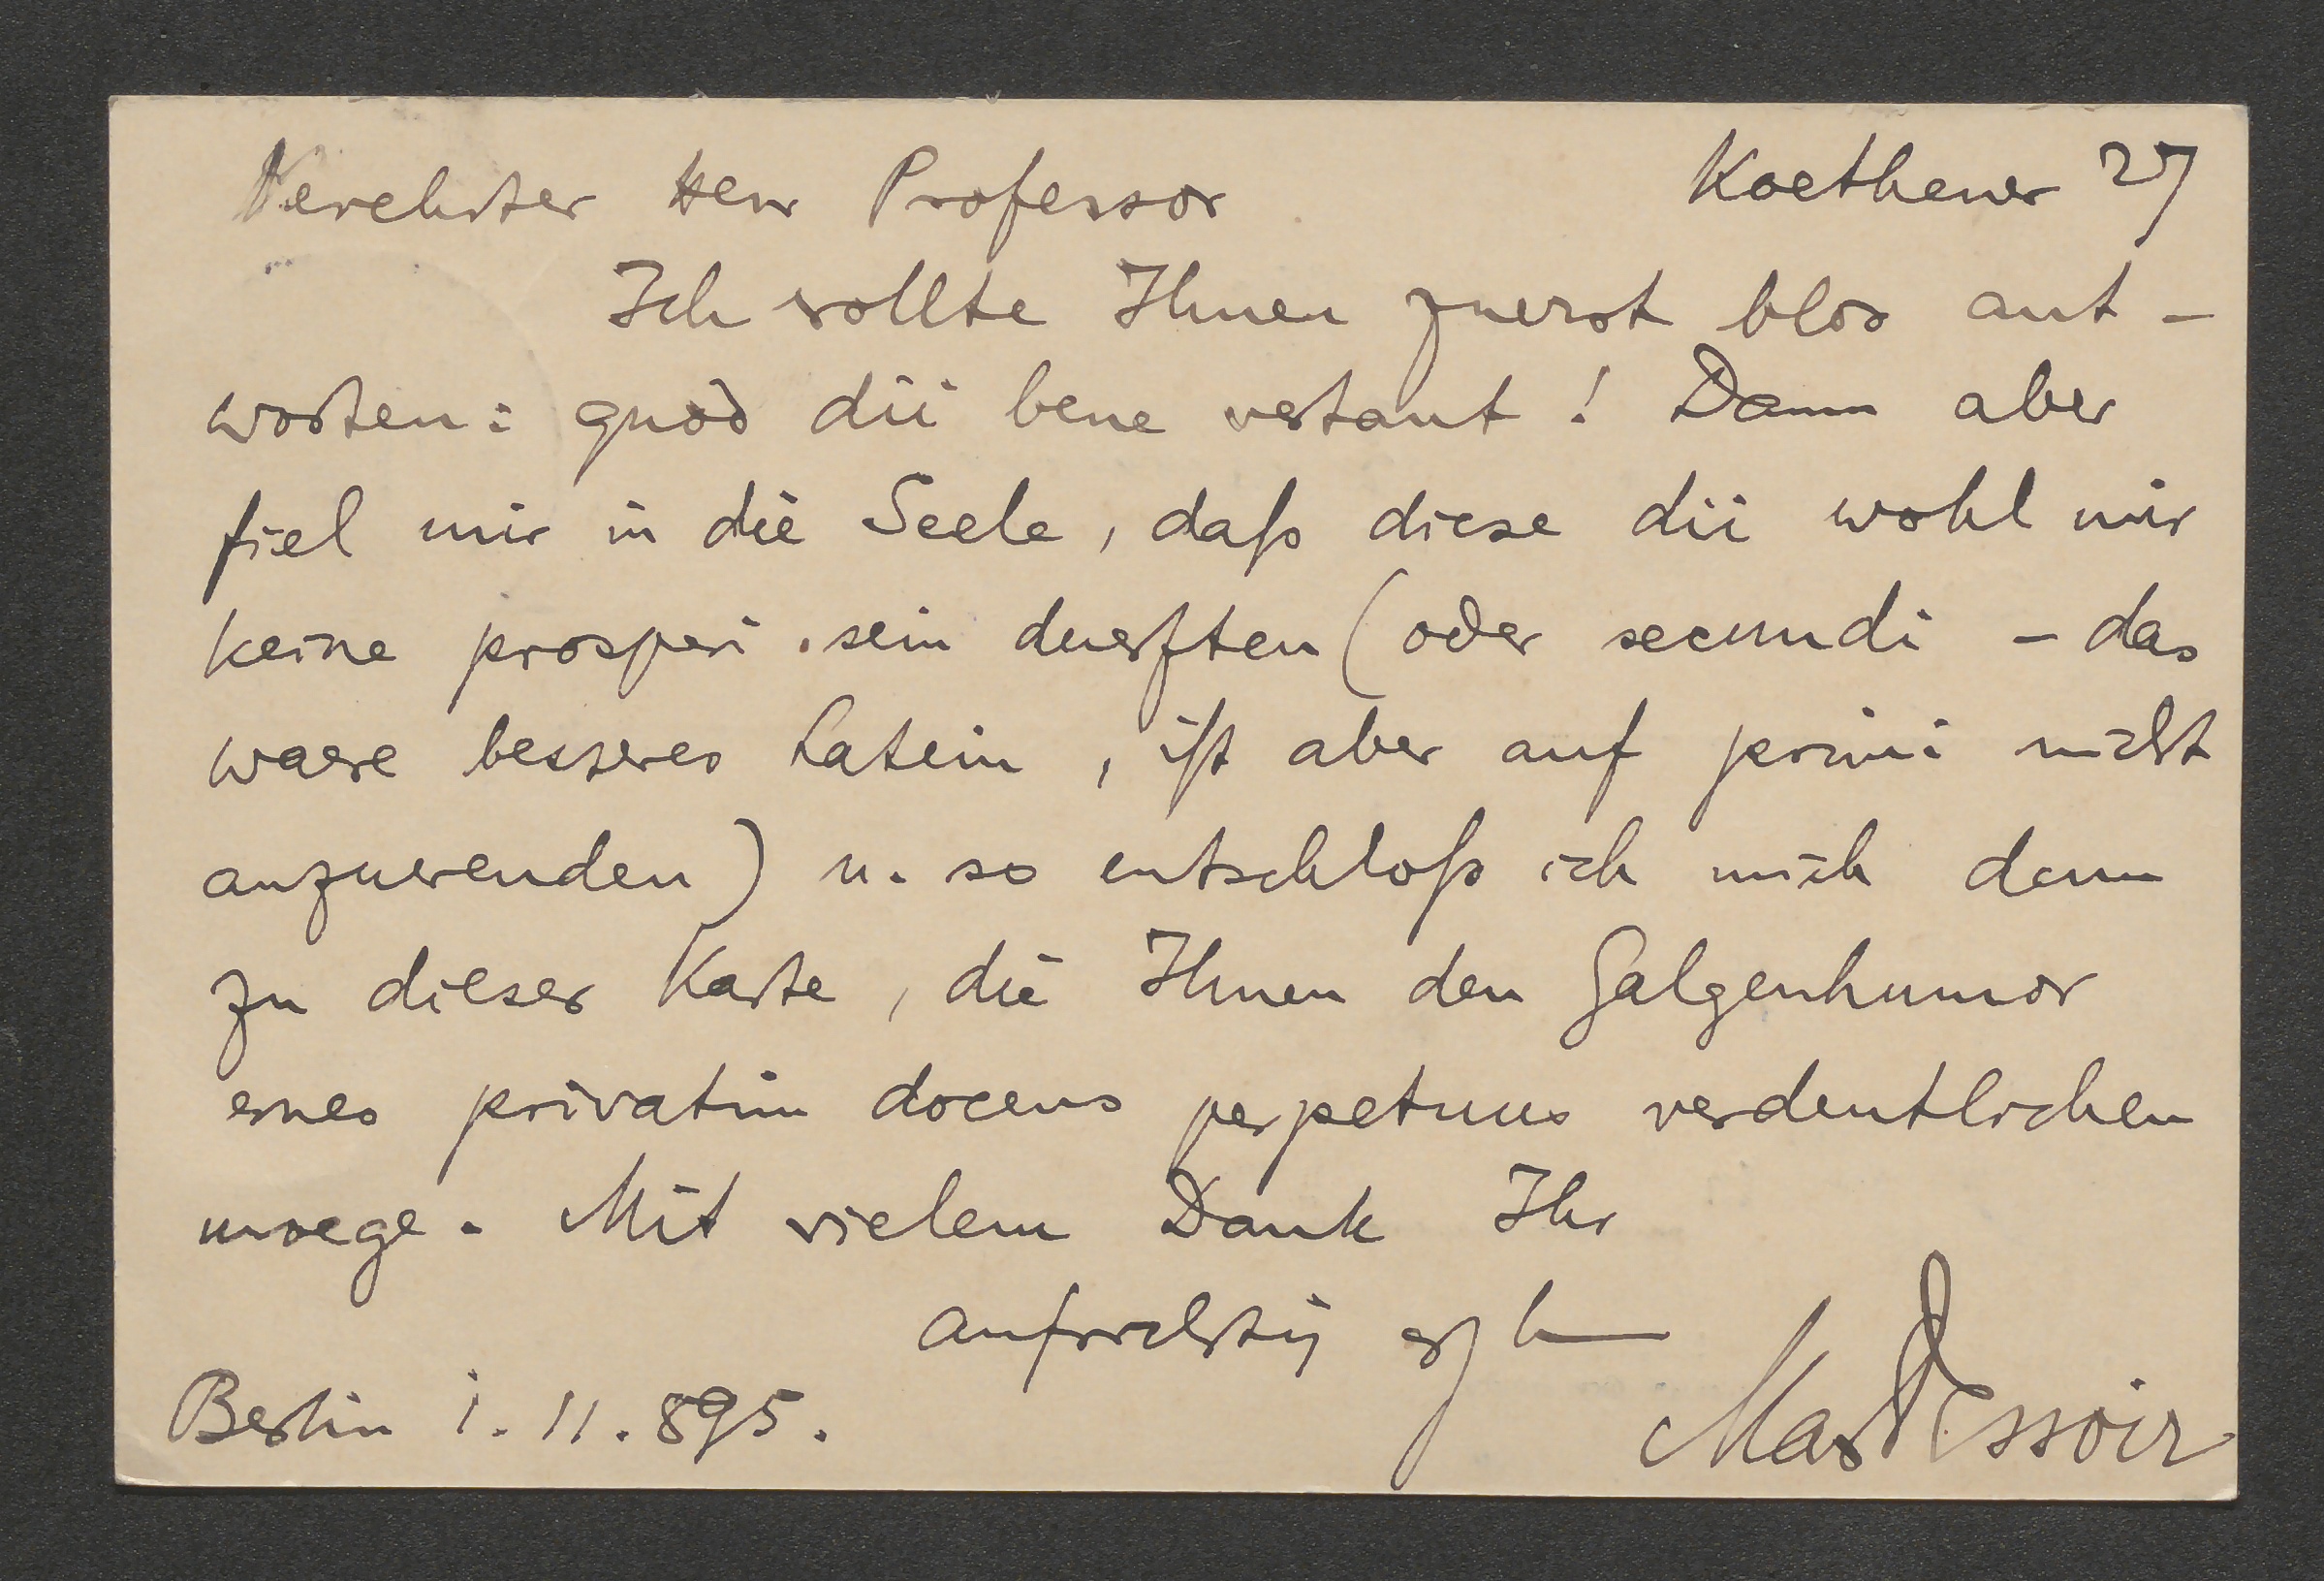 Verehrter Herr Professor Koethener 27
Ich wollte Ihnen zuerst blos ant-
worten: quod dii bene vertant! Dann aber
fiel mir in die Seele, daß diese dii wohl mir
keine prosperi sein duerften (oder secundi - das
waere besseres Latein, ist aber auf primi nicht
anzuwenden) u. so entschloß ich mich denn
zu dieser Karte, die Ihnen den Galgenhumor
eines privatim docens perpetuus verdeutlichen
moege. Mit vielem Dank Ihr
aufrichtig
Max Dessoir
Berlin 1.11.895.